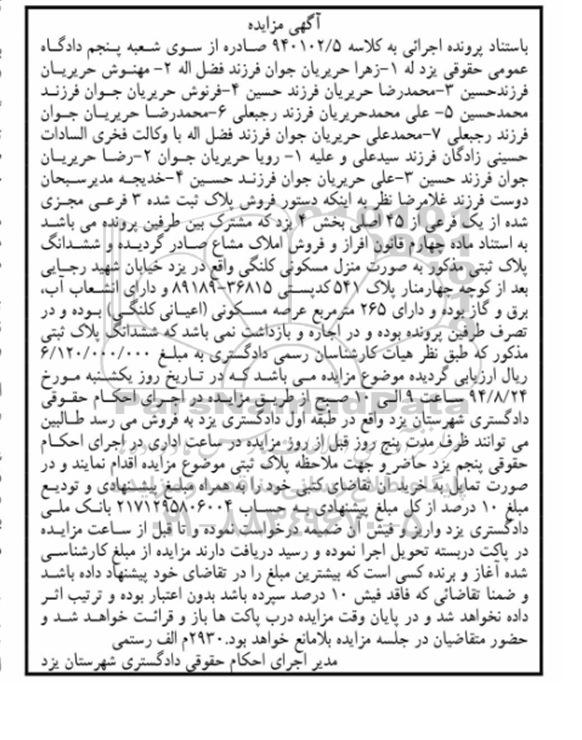 آگهی مزایده
باستناد پرونده اجرائی به کلاسه ۹۴۰۱۰۲/۵ صادره از سوی شعبه پنجم دادگاه
عمومی حقوقی یزد له ۱-زهرا حریریان جوان فرزند فضل اله ۲- مهنوش حریریان
فرزندحسین ۳-محمدرضا حریریان فرزند حسین ۴-فرنوش حریریان جوان فرزند
محمدحسین ۵- علی محمدحریریان فرزند رجبعلی ۶-محمدرضا حریریان جوان
فرزند رجبعلی ۷-محمدعلی حریریان جوان فرزند فضل اله با وکالت فخری السادات
حسینی زادگان فرزند سیدعلی و علیه ۱- رویا حریریان جوان ۲-رضا حریریان
جوان فرزند حسین ۳-علی حریریان جوان فرزند حسین ۴-خدیجه مدیرسبحان
دوست فرزند غلامرضا نظر به اینکه دستور فروش پلاک ثبت شده ۳ فرعی مجزی
شده از یک فرعی از ۴۵ اصلی بخش ۴ یزد که مشترک بین طرفین پرونده می باشد
به استناد ماده چهارم قانون افراز و فروش املاک مشاع صادر گردیده و ششدانگ
پلاک ثبتی مذکور به صورت منزل مسکونی کلنگی واقع در یزد خیابان شهید رجایی
بعد از کوچه چهارمنار پلاک ۵۴۱ کدپستی ۳۶۸۱۵-۸۹۱۸۹ و دارای انشعاب آب،
برق و گاز بوده و دارای ۲۶۵ مترمربع عرصه مسکونی (اعیانی کلنگی) بوده و در
تصرف طرفین پرونده بوده و در اجاره و بازداشت نمی باشد که ششدانگ پلاک ثبتی
مذکور که طبق نظر هیات کارشناسان رسمی دادگستری به مبلغ ۶/۱۲۰/۰۰۰/۰۰۰
ریال ارزیابی گردیده موضوع مزایده می باشد که در تاریخ روز یکشنبه مورخ
۹۴/۸/۲۴ ساعت ۹ الی ۱۰ صبح از طریق مزایده در اجرای احکام حقوقی
دادگستری شهرستان یزد واقع در طبقه اول دادگستری یزد به فروش می رسد طالبین
می توانند ظرف مدت پنج روز قبل از روز مزایده در ساعت اداری در اجرای احکام
حقوقی پنجم یزد حاضر و جهت ملاحظه پلاک ثبتی موضوع مزایده اقدام نمایند و در
صورت تمایل به خرید آن تقاضای کتبی خود را به همراه مبلغ پیشنهادی و تودیع
مبلغ ۱۰ درصد از کل مبلغ پیشنهادی به حساب ۲۱۷۱۲۹۵۸۰۶۰۰۴ بانک ملی
دادگستری یزد واریز و فیش آن ضمیمه درخواست نموده و تا قبل از ساعت مزایده
در پاکت دربسته تحویل اجرا نموده و رسید دریافت دارند مزایده از مبلغ کارشناسی
شده آغاز و برنده کسی است که بیشترین مبلغ را در تقاضای خود پیشنهاد داده باشد
و ضمنا تقاضائی که فاقد فیش ۱۰ درصد سپرده باشد بدون اعتبار بوده و ترتیب اثر
داده نخواهد شد و در پایان وقت مزایده درب پاکت ها باز و قرائت خواهد شد و
حضور متقاضیان در جلسه مزایده بلامانع خواهد بود.۲۹۳۰م الف رستمی
مدیر اجرای احکام حقوقی دادگستری شهرستان یزد
ParsNamadData